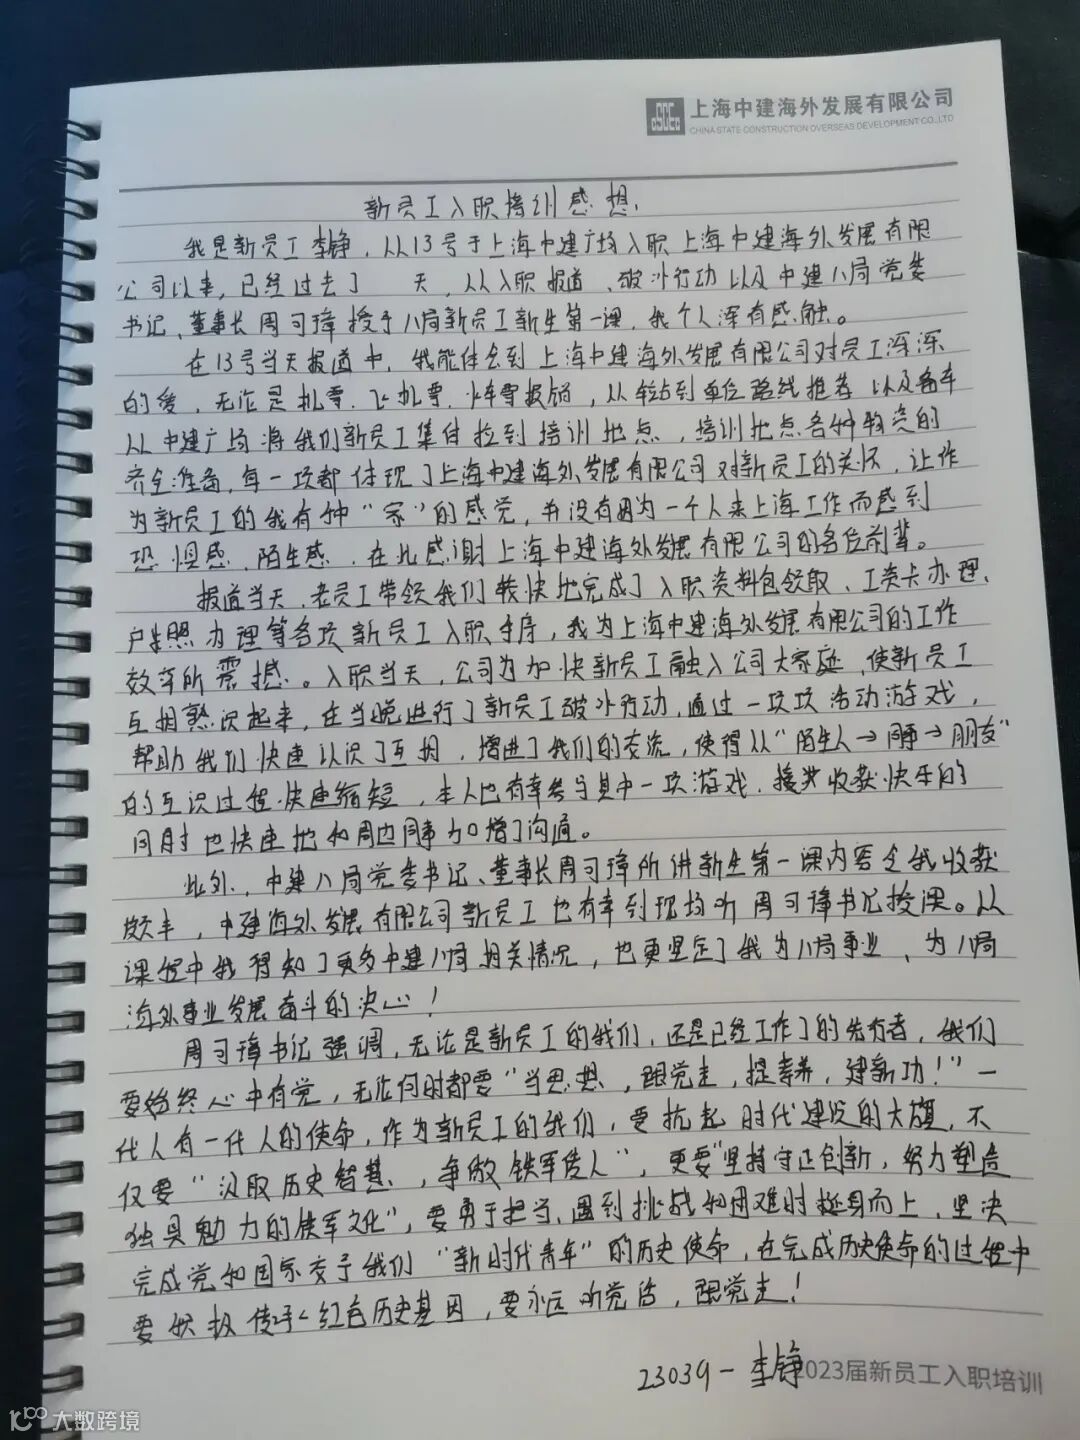 上海中建海外发展有限公司
CHINA STATE CONSTRUCTION OVERSEAS DEVELOPMENT CO.,LTD
新员工入职培训感想.
我是新员工李铮，从13号于上海中建广场入职上海中建海外发展有限
公司以来，已经过去了 天，从入职报道、破冰行动以及中建八局党委
书记、董事长周可璋授予八局新员工新生第一课，我个人深有感触。
在13号当天报道中，我能体会到上海中建海外发展有限公司对员工深深
的爱，无论是机票、飞机票、火车票报销，从车站到单位路线推荐以及备车
从中建广场将我们新员工集体拉到培训地点，培训地点各种物资的
齐全准备，每一项都体现了上海中建海外发展有限公司对新员工的关怀，让作
为新员工的我有种“家”的感觉，并没有因为一个人来上海工作而感到
恐惧感、陌生感，在此感谢上海中建海外发展有限公司的各位前辈。
报道当天，老员工带领我们较快地完成了入职资料包领取、工资卡办理、
户照办理等各项新员工入职手序，我为上海中建海外发展有限公司的工作
效率所震撼。入职当天，公司为加快新员工融入公司大家庭，使新员工
互相熟识起来，在当晚进行了新员工破冰行动，通过一项项活动游戏，
帮助我们快速认识了互相，增进了我们的交流，使得从“陌生人→同事→朋友”
的互识过程快速缩短，本人也有幸参与其中一项游戏，接并收获快乐的
同时也快速地和周边同事加增了沟通。
此外，中建八局党委书记、董事长周可璋所讲新生第一课内容令我收获
颇丰，中建海外发展有限公司新员工也有幸到现场听周可璋书记授课。从
课程中我得知了更多中建八局相关情况，也更坚定了我为八局事业、为八局
海外事业发展奋斗的决心！
周可璋书记强调，无论是新员工的我们，还是已经工作了的先有者，我们
要始终心中有党，无论何时都要“当思想，跟党走，提素养，建新功！”一
代人有一代人的使命，作为新员工的我们，要抗起时代建设的大旗，不
仅要“汲取历史智慧，争做铁军传人”，更要“坚持守正创新，努力塑造
独具魅力的铁军文化”，要勇于担当、遇到挑战和困难时挺身而上，坚决
完成党和国家交予我们“新时代青年”的历史使命，在完成历史使命的过程中
要积极传承红色历史基因，要永远听党话，跟党走！
23039-李铮
2023届新员工入职培训
大数跨境